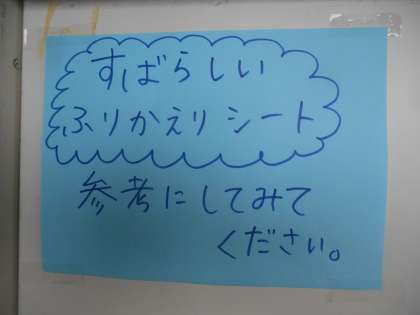 すばらしい
ふりかえりシート
参考にしてみて
ください。